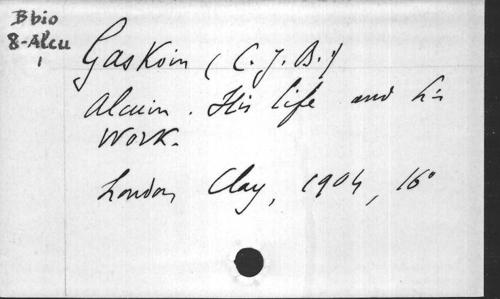 B bio
8-Alcu
1
Gaskoin (C. J. B.)
Alcuin. His life and his
work.
London, Clay, 1904, 16°